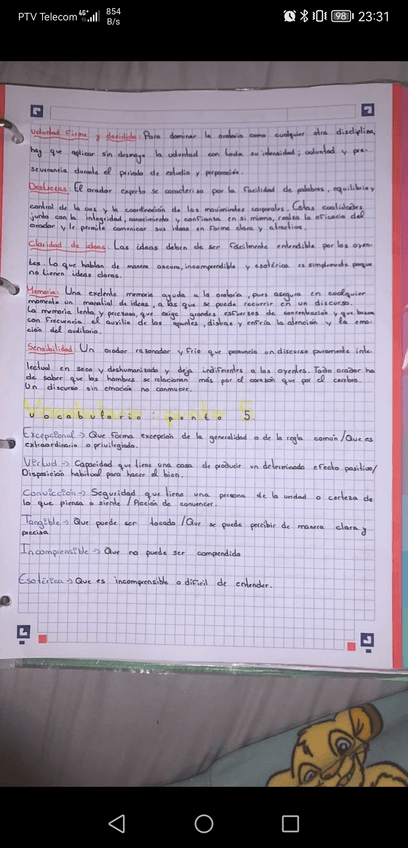 PTV Telecom 4G+ 854 B/s 98 23:31
Voluntad firme y decidida: Para dominar la oratoria como cualquier otra disciplina,
hay que aplicar sin desmayo la voluntad con toda su intensidad; voluntad y per-
severancia durante el periodo de estudio y preparación.
Destrezas: El orador experto se caracteriza por la facilidad de palabras, equilibrio y
control de la voz y la coordinación de los movimientos corporales. Estas cualidades,
junto con la integridad, conocimiento y confianza en si misma, realza la eficacia del
orador y le permite comunicar sus ideas en forma clara y atractiva.
Claridad de ideas: Las ideas deben de ser facilmente entendible por los oyen-
tes. Lo que hablan de manera oscura, incomprendible y esotérica es simplemente porque
no tienen ideas claras.
Memoria: Una exelente memoria ayuda a la oratoria, pues asegura en cualquier
momento un manatial de ideas, a las que se puede recurrir en un discurso.
La memoria lenta y precosa, que exige grandes esfuerzos de concentración y que busca
con frecuencia el auxilio de los apuntes, distrae y enfría la atención y la emo-
ción del auditorio.
Sensibilidad: Un orador razonador y frio que pronuncia un discurso puramente inte-
lectual en seco y deshumanizado y deja indifirentes a los oyentes. Todo orador ha
de saber que los hombres se relacionan más por el corazón que por el cerebro.
Un discurso sin emoción no conmueve.
Vocabulario: punto 5.
Excepcional → Que forma excepción de la generalidad o de la regla común / Que es
extraordinario o privilegiado.
Virtud → Capacidad que tiene una cosa de producir un determinado efecto positivo /
Disposición habitual para hacer el bien.
Convicción → Seguridad que tiene una persona de la verdad o certeza de
lo que piensa o siente / Acción de convencer.
Tangible → Que puede ser tocado / Que se puede percibir de manera clara y
precisa
Incomprensible → Que no puede ser compendida
Esotérica → Que es incomprensible o dificil de entender.